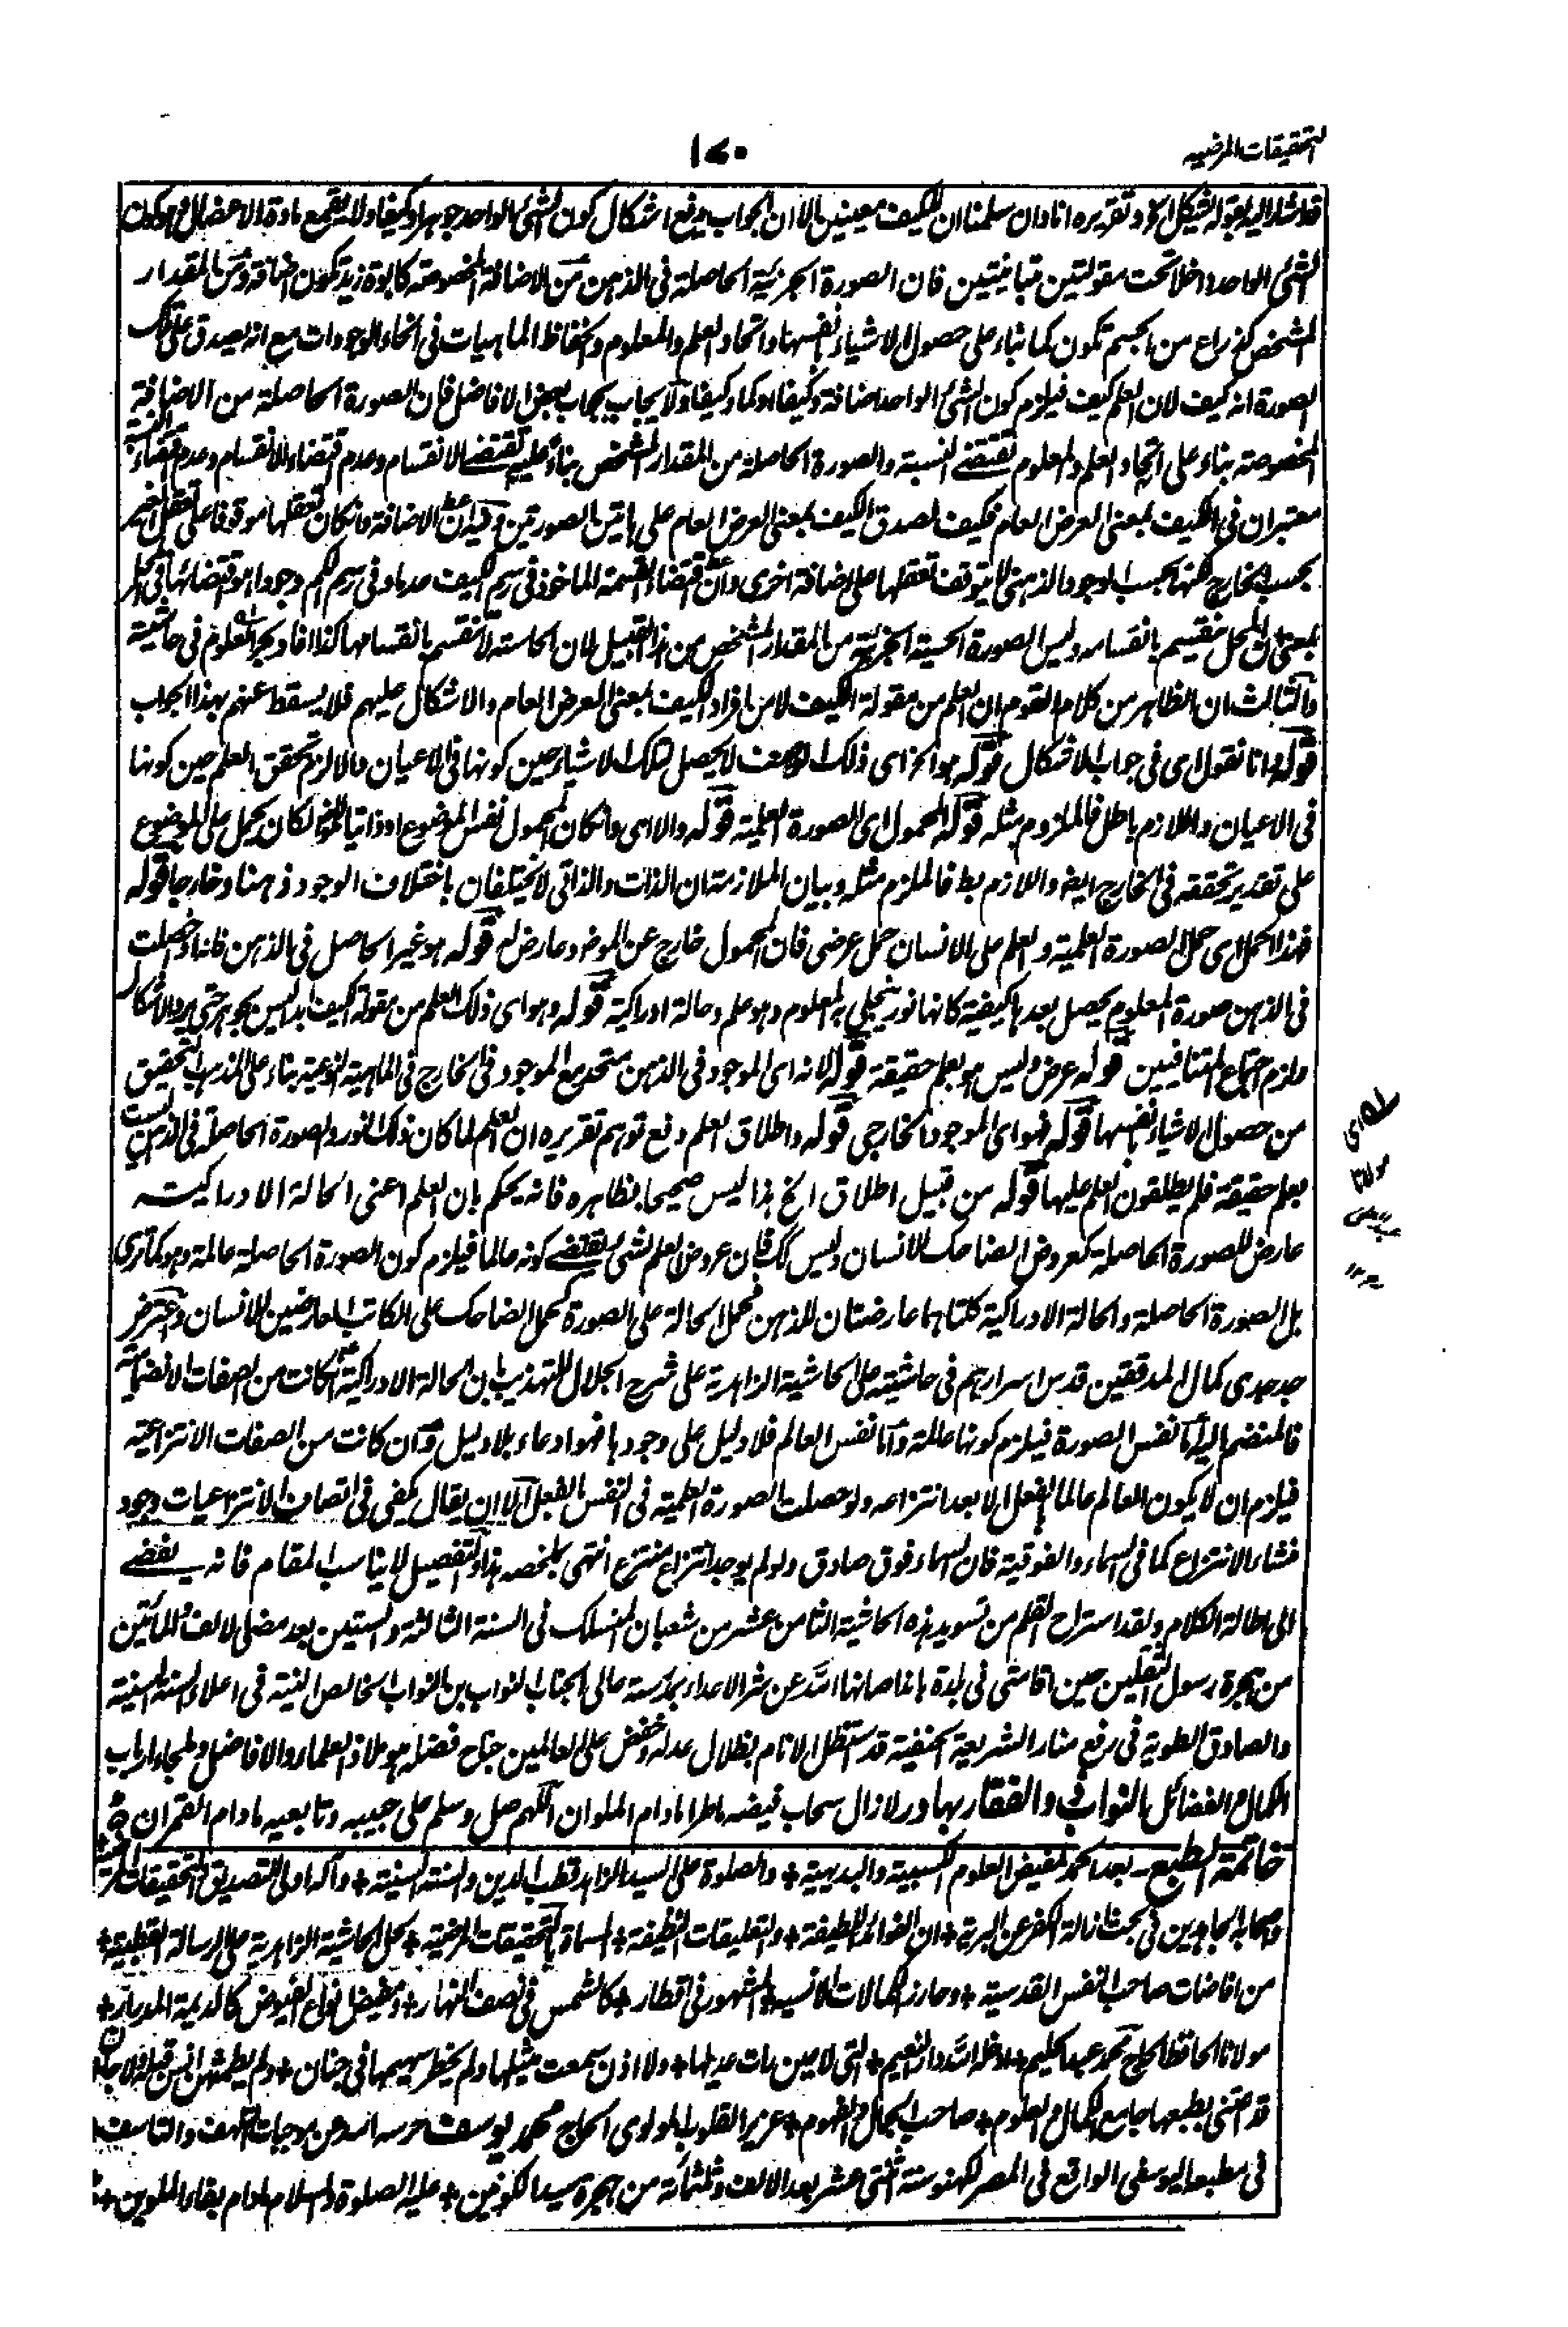 التحقیقات المرضیه
۱۷۰
قد اشار الیه بقوله یشکل الخ وتقریره انا وان سلمنا ان للکیف معنیین الا ان الجواب یدفع اشکال کون الشئ الواحد جوهرا وکیفا ولا یقمع مادة الاعضال وهو کون
الشئ الواحد داخلا تحت مقولتین متباینتین فان الصورة الجزئیة الحاصلة فی الذهن من الاضافة المخصوصة کابوة زید تکون اضافة ومن المقدار
المشخص کذراع من الجسم تکون کما بناء علی حصول الاشیاء بانفسها واتحاد العلم والمعلوم وانحفاظ الماهیات فی انحاء الوجودات مع انه یصدق علی تلک
الصورة انه کیف لان العلم کیف فیلزم کون الشئ الواحد اضافة وکیفا او کما وکیفا ولا یجاب بجواب بعض الافاضل فان الصورة الحاصلة من الاضافة
المخصوصة بناء علی اتحاد العلم والمعلوم تقتضے النسبة والصورة الحاصلة من المقدار المشخص بناء علیه تقتضے الانقسام وعدم اقتضاء الانقسام وعدم اقتضاء النسبة
معتبران فی الکیف بمعنی العرض العام فکیف یصدق الکیف بمعنی العرض العام علی هاتین الصورتین وفیه ان الاضافة وانکان تعقلها موقوفا علی تعقل الغیر
بحسب الخارج لکنها بحسب الوجود الذهنی لا یتوقف تعقلها علی اضافة اخری وان اقتضاء القسمة الماخوذ فی رسم الکیف عدما وفی رسم الکم وجودا هو اقتضائها فی المحل
بمعنی ان المحل ینقسم بانقسامه ولیس الصورة الحسیة الجزئیة من المقدار المشخص من هذا القبیل لان الحاسة لا تنقسم بانقسامها کذا افاد بحر العلوم فی حاشیته
والثالث ان الظاهر من کلام القوم ان العلم من مقولة الکیف لا من افراد الکیف بمعنی العرض العام والاشکال علیهم فلا یسقط عنهم بهذا الجواب
قوله وانا نقول ای فی جواب الاشکال قوله هو الخ ای ذلک الوصف لا یحصل لتلک الاشیاء حین کونها فی الاعیان والا لزم تحقق العلم حین کونها
فی الاعیان واللازم باطل فالملزوم مثله قوله المحمول ای الصورة العلمیة قوله والا ای وانکان المحمول نفس الموضوع او ذاتیا له لکان یحمل علی الموضوع
علی تقدیر تحققه فی الخارج ایضا واللازم بط فالملزوم مثله وبیان الملازمة ان الذات والذاتی لا یختلفان باختلاف الوجود ذهنا وخارجا قوله
فهذا الحمل ای حمل الصورة العلمیة والعلم علی الانسان حمل عرضی فان المحمول خارج عن الموضوع وعارض له قوله هو غیر الحاصل فی الذهن فانا اذا حصلت
فی الذهن صورة المعلوم یحصل بعدها کیفیة کانها نور ینجلی به المعلوم وهو علم وحالة ادراکیة قوله وهو ای ذلک العلم من مقولة الکیف ابدا لیس بجوهر حتی یرد الاشکال
ولزم اجتماع المتنافیین قوله عرض ولیس هو بعلم حقیقة قوله لانه ای الموجود فی الذهن متحد مع الموجود فی الخارج فی الماهیة النوعیة بناء علی المذهب التحقیق
من حصول الاشیاء بانفسها قوله فهو ای الموجود الخارجی قوله واطلاق العلم دفع توهم تقریره ان العلم لما کان ذلک النور والصورة الحاصلة فی الذهن لیست
بعلم حقیقة فلم یطلقون العلم علیها قوله من قبیل اطلاق الخ هذا لیس صحیحا بظاهره فانه یحکم بان العلم اعنی الحالة الادراکیة
عارض للصورة الحاصلة کعروض الضاحک للانسان ولیس کک فان عروض العلم لشئ یقتضے کونه عالما فیلزم کون الصورة الحاصلة عالمة وهو کما تری
بل الصورة الحاصلة والحالة الادراکیة کلتاهما عارضتان للذهن فحمل الحالة علی الصورة کحمل الضاحک علی الکاتب العارضین للانسان واعترض
جد جدی کمال المدققین قدس اسرارهم فی حاشیته علی الحاشیة الزاهدیة علی شرح الجلال للتهذیب بان الحالة الادراکیة ان کانت من الصفات الانضمامیة
فالمنضم الیه اما نفس الصورة فیلزم کونها عالمة واما نفس العالم فلا دلیل علی وجودها فهو ادعاء بلا دلیل وان کانت من الصفات الانتزاعیة
فیلزم ان لا یکون العالم عالما بالفعل الا بعد انتزاعه ولو حصلت الصورة العلمیة فی النفس بالفعل الا ان یقال یکفی فی اتصاف الانتزاعیات وجود
منشاء الانتزاع کما فی السماء والفوقیة فان السماء فوق صادق ولو لم یوجد انتزاع منتزع انتهی بملخصه هذا والتفصیل لا یناسب المقام فانه یفضے
الی اطالة الکلام ولقد استراح القلم من تسوید هذه الحاشیة الثامن عشر من شعبان المنسلک فی السنة الثالثة والستین بعد مضی الالف والمأتین
من هجرة رسول الثقلین حین اقامتی فی بلدة باندا صانها الله عن شر الاعداء بمدرسة عالی الجناب النواب بن النواب الخالص النیة فی اعلاء السنة السنیة
والصادق الطویة فی رفع منار الشریعة الحنفیة قد استظل الانام بظلال عدله وخفض علی العالمین جناح فضله هو ملاذ العلماء والافاضل وملجاء ارباب
الکمال والفضائل النواب ذو الفقار بهادر لازال سحاب فیضه ماطرا مادام الملوان اللهم صل وسلم علی حبیبه وتابعیه مادام القمران
خاتمة الطبع۔ بعد الحمد لمفیض العلوم الکسبیة والبدیهیة + والصلوة علی السید الزاهد قطب الدین والسنة السنیة + وآله اولی التصدیق والتحقیقات المرضیة
وصحابه المجاهدین فی بحث ازالة الکفر عن البریة + ان الفوائد اللطیفة + والتعلیقات النظیفة + المسماة بالتحقیقات المرضیة + لحل الحاشیة الزاهدیة علی الرسالة القطبیة +
من افاضات صاحب النفس القدسیة + وحائز الکمالات الانسیه + المشهور فی اقطار + کالشمس فی نصف النهار + ومفیض انواع الفیوض کالدیمة المدرار +
مولانا الحافظ الحاج محمد عبد الحلیم + ادخله الله دار النعیم + التی لا عین رات عدیلها + ولا اذن سمعت مثیلها ولم یخطر سهیمها فی جنان + ولم یطمثهن انس قبله ولا جان
قد اعتنی بطبعها جامع الکمال والعلوم + صاحب الجمال والفهوم + عزیز القلوب المولوی الحاج محمد یوسف حرسه الله عن موجبات التلهف والتاسف
فی مطبعه الیوسفی الواقع فی المصر لکهنو سنة اثنتی عشر بعد الالف وثلثمائة من هجرة سید الکونین + علیه الصلوة والسلام مادام بقاء الملوین +